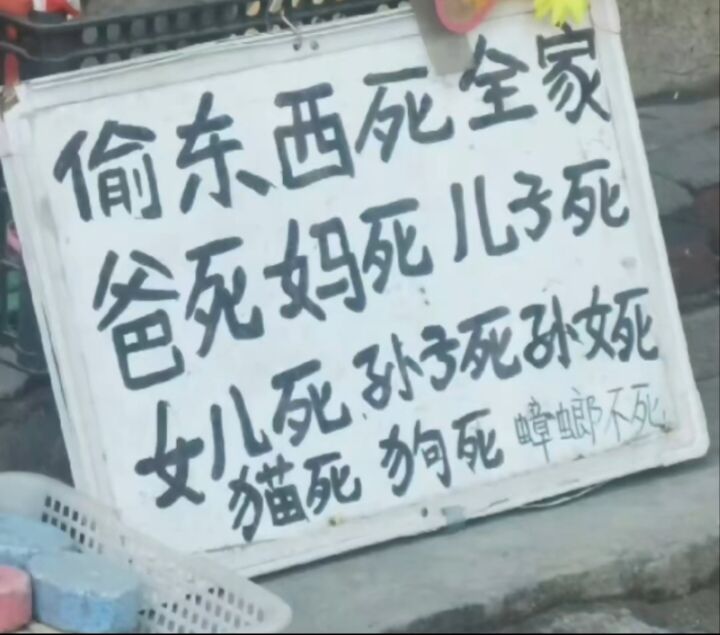 偷东西死全家
爸死妈死儿子死
女儿死孙子死孙女死
猫死 狗死 蟑螂不死